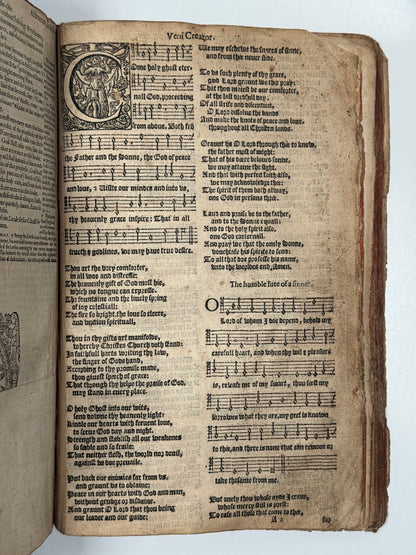 Veni Creator.
COme holy ghost eter-
nall God, proceeding
from aboue. Both frō
the Father and the Sonne, the God of peace
and loue, 2 Uisite our mindes and into vs,
thy heauenly grace inspire: That in all
trueth & godlines, we may haue true desire.
Thou art the very comforter,
in all woe and distresse:
The heauenly gift of God most hie,
which no tongue can expresse.
The fountaine and the liuely spring
of ioy celestiall:
The fire so bright, the loue so cleere,
and vnction spirituall.
Thou in thy gifts art manifolde,
whereby Christes Church doth stand:
In faithfull harts writing thy law,
the finger of Gods hand.
According to thy promise made,
thou giuest speech of grace:
That through thy helpe the praise of God,
may stand in euery place.
O holy Ghost into our wits,
send downe thy heauenly light:
Kindle our hearts with feruent loue,
to serue God day and night.
Strength and stablish all our weaknes
so fable and so fraile:
That neither flesh, the world nor deuil,
against vs doe preuaile.
Put back our enemies far from vs,
and graunt vs to obtaine:
Peace in our hearts with God and man,
without grudge or disdaine.
And graunt O Lord that thou being
our leader and our guide:
We may eschewe the snares of sinne,
and from thee neuer slide.
To vs such plenty of thy grace,
good Lord graunt we thee pray:
That thou maiest be our comforter,
at the last dreadfull day.
Of all strife and dissention,
O Lord dissolue the bands
And make the knots of peace and loue,
throughout all Christen lands.
Graunt vs O Lord through thee to know,
the father most of might:
That of his deare beloued sonne,
we may attaine the sight.
And that with perfect faith also,
we may acknowledge thee:
The spirit of them both alway,
one God in persons thre.
Laud and praise be to the father,
and to the Sonne equall:
And to the holy spirit also,
one God coeternall.
And pray we that the onely Sonne,
vouchsafe his spirit to send:
To all that doe professe his name,
vnto the worldes end, Amen.
The humble sute of a sinner.
O Lord of whom I doe depend, behold my
carefull heart, and when thy wil & pleasure
is, release me of my smart, thou seest my
sorrowes what they are, my grief is knowen
to thee, and there is none that can remoue or
take the same from me.
But onely thou whose ayde I craue,
whose mercy still is prest:
To ease all those that come to thee,
A 2 for